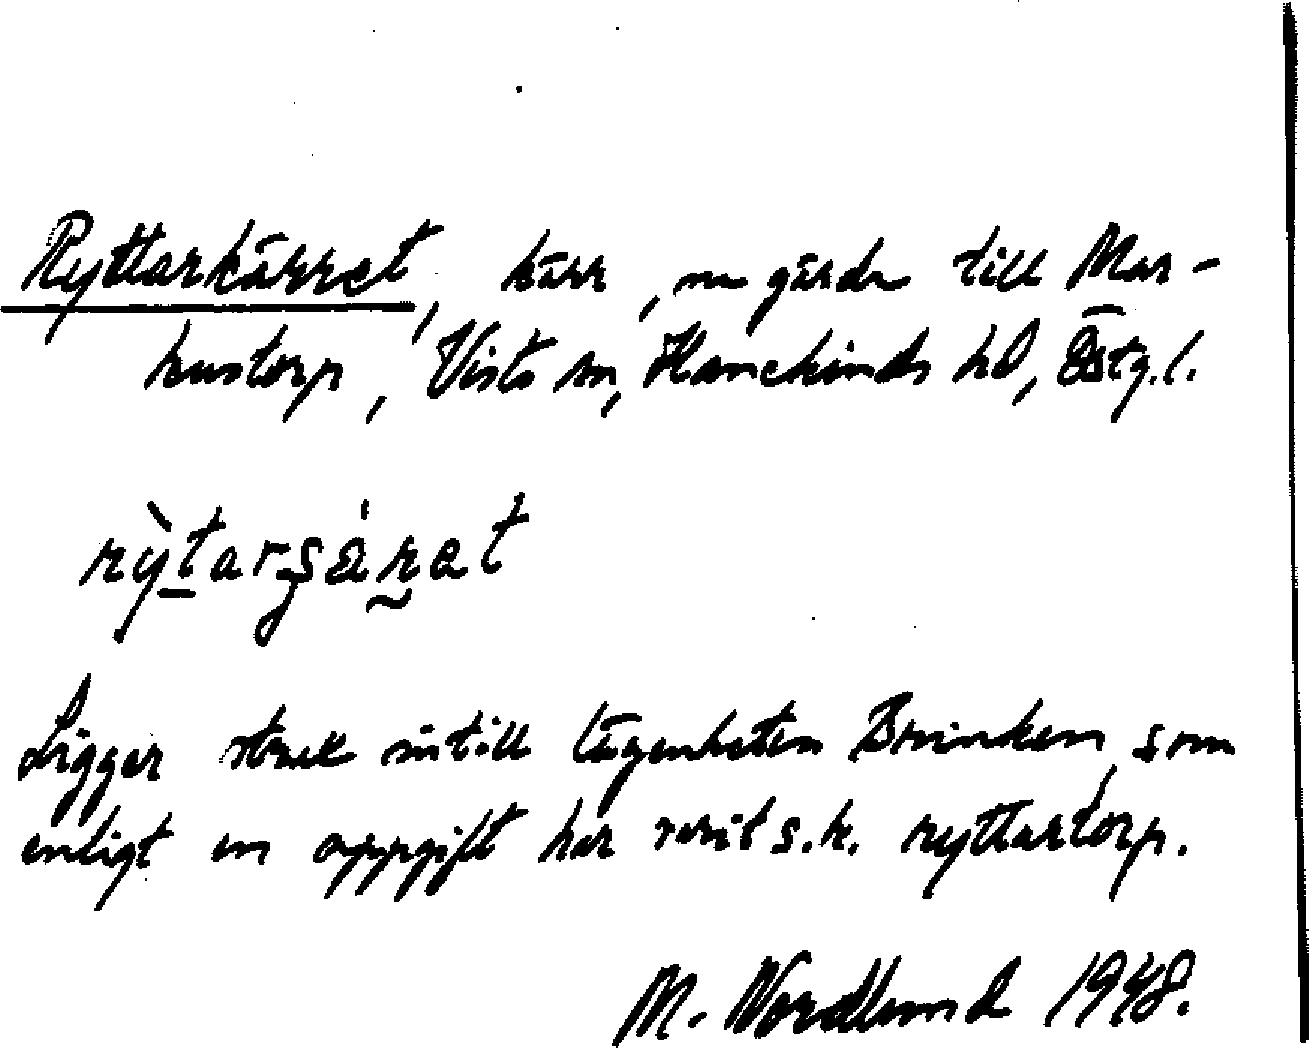 Ryttarkärret, kärr, nu gärde till Mar-
kustorp, Vists sn, Hanekinds hd, Östg.l.
rỳtarşä́ret
Ligger strax intill lägenheten Brinken, som
enligt en uppgift har varit s.k. ryttartorp.
M. Nordlund 1948.